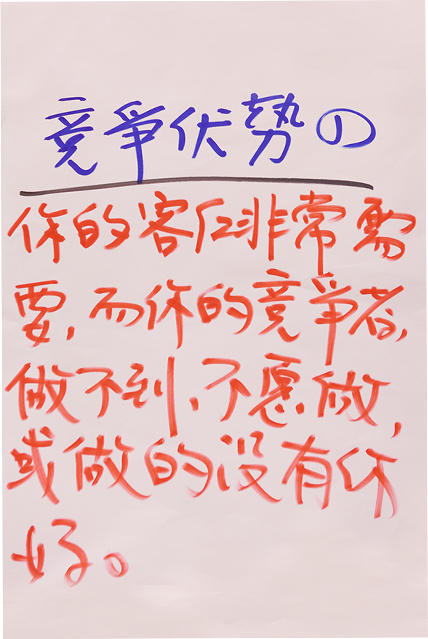 竞争优势①
你的客户非常需
要，而你的竞争者，
做不到、不愿做，
或做的没有你
好。